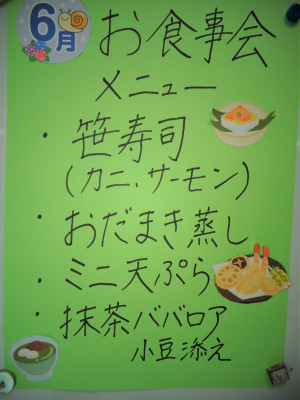 6月
お食事会
メニュー
・笹寿司
(カニ、サーモン)
・おだまき蒸し
・ミニ天ぷら
・抹茶ババロア
小豆添え